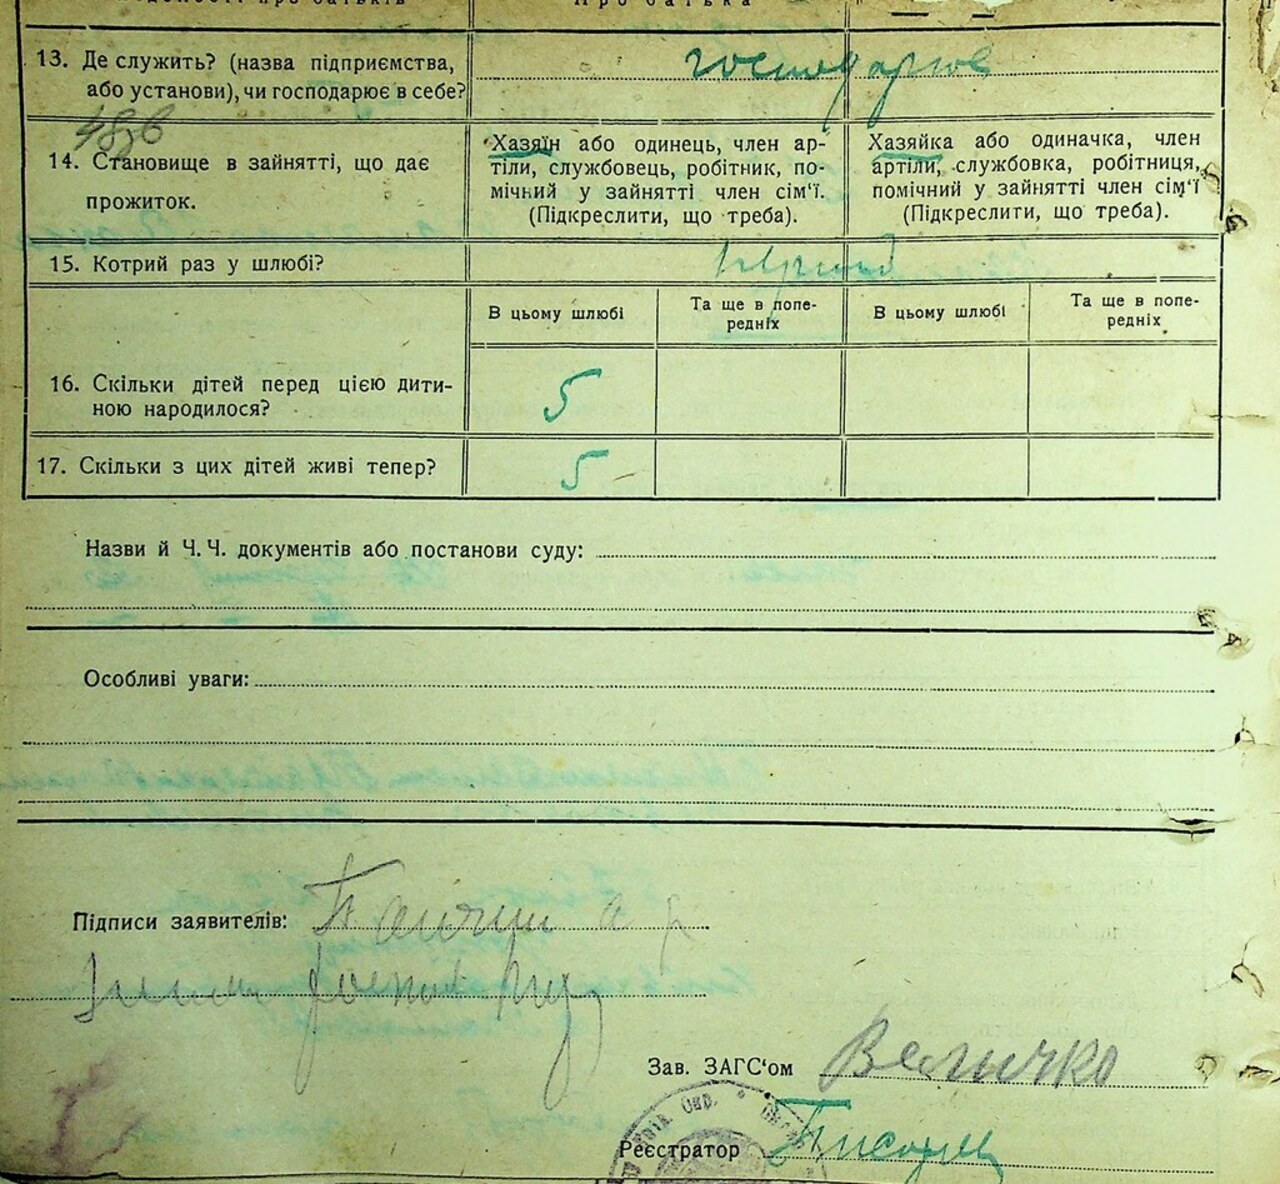 Відомості про батьків Про батька
13. Де служить? (назва підприємства,
або установи), чи господарює в себе?
господарює
4836
14. Становище в зайнятті, що дає
прожиток.
Хазяїн або одинець, член ар-
тіли, службовець, робітник, по-
мічний у зайнятті член сім'ї.
(Підкреслити, що треба).
Хазяйка або одиначка, член
артіли, службовка, робітниця,
помічний у зайнятті член сім'ї
(Підкреслити, що треба).
15. Котрий раз у шлюбі?
перший
В цьому шлюбі
Та ще в попе-
редніх
В цьому шлюбі
Та ще в попе-
редніх
16. Скільки дітей перед цією дити-
ною народилося?
5
17. Скільки з цих дітей живі тепер?
5
Назви й Ч. Ч. документів або постанови суду:
Особливі уваги:
Підписи заявителів:
Зав. ЗАГС'ом Величко
Реєстратор